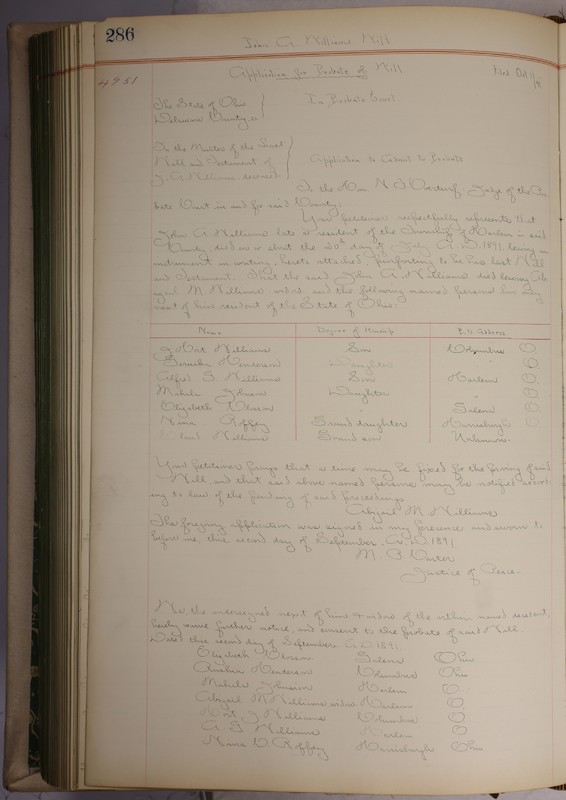 286
John A. Williams Will
Application for Probate of Will
Filed Oct 1/91
4951
The State of Ohio
Delaware County, ss
In Probate Court
In the Matter of the Last
Will and Testament of
J. A. Williams, deceased.
Application to Admit to Probate
To the Hon. N. F. Overturf, Judge of the Pro-
bate Court in and for said County:
Your petitioner respectfully represents that
John A. Williams late a resident of the Township of Harlem in said
County, died on or about the 20th day of July A.D. 1891, leaving an
instrument in writing, hereto attached, purporting to be his last Will
and Testament. That the said John A. Williams died leaving Abi-
gail M. Williams widow, and the following named persons his only
next of kin resident of the State of Ohio:
Name Degree of Kinship P.O. Address
J Hort Williams Son Columbus O
Henderson Daughter " O
Alfred G. Williams Son Harlem O
Mahala Johnson Daughter " O
Elizabeth " Salem O
Nina Roffey Grand daughter Harrisburgh O
Williams Grand son Unknown.
Your petitioner prays that a time may be fixed for the proving of said
Will, and that said above named persons may be notified accord-
ing to law of the pendency of said proceedings.
Abigail M Williams
The foregoing application was signed in my presence and sworn to
before me, this second day of September A.D. 1891
M. P
Justice of Peace.
We, the undersigned next of kin & widow of the within named decedent,
hereby waive further notice, and consent to the probate of said Will.
Dated this second day of September A.D. 1891.
Elizabeth Salem Ohio
Henderson Columbus Ohio
Mahala Johnson Harlem O
Abigail M Williams widow Harlem O
Hort J Williams Columbus O
A. G Williams Harlem O
Nina V. Roffey Harrisburgh Ohio